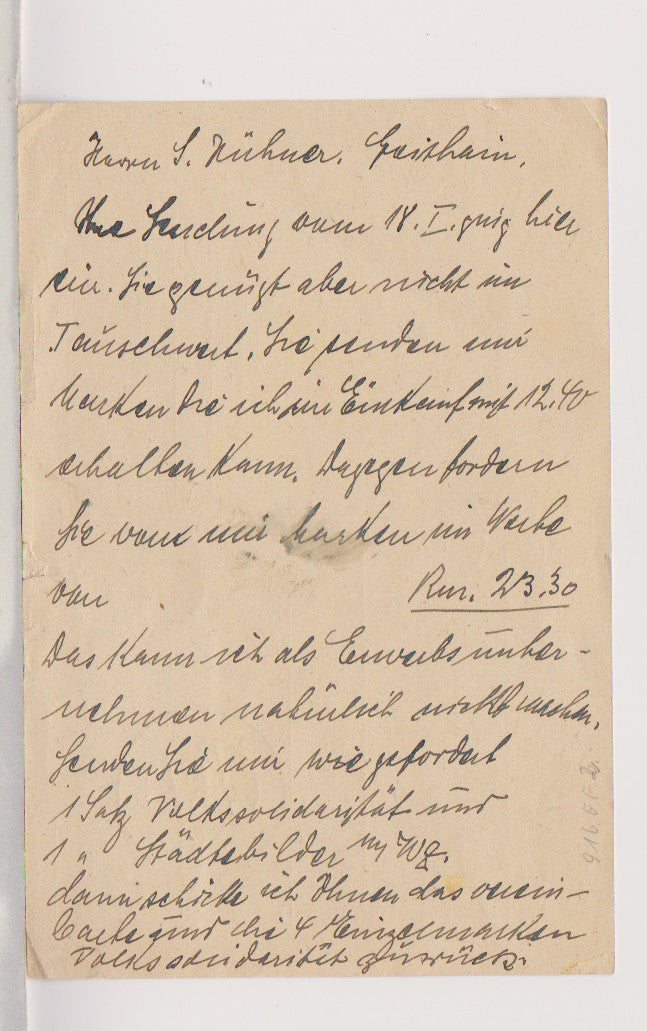 Herrn S. Hühner. Geithain.
Ihre Sendung vom 18. I. ging hier
ein. Sie genügt aber nicht im
Tauschwert. Sie senden mir
Marken die ich im Einkauf mit 12.40
erhalten kann. Dagegen fordern
Sie von mir Marken im Werte
von Rm. 23.30
Das kann ich als Erwerbsunter-
nehmen natürlich nicht machen.
Senden Sie mir wie gefordert
1 Satz Volkssolidarität und
1 " Städtebilder m/Wz.
dann schicke ich Ihnen das verein-
barte und die 4 Einzelmarken
Volkssolidarität zurück.